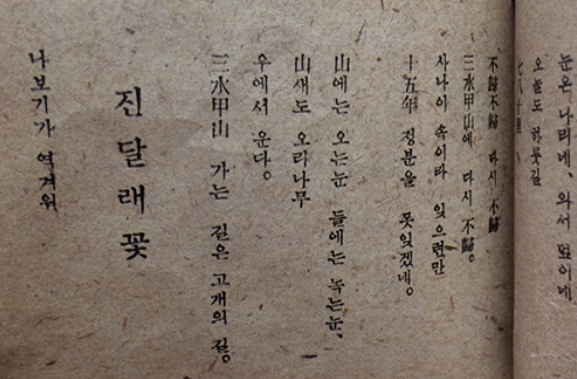 눈은 나리네、 와서 덮이네
오늘도 하룻길
七八十里
不歸不歸 다시 不歸
三水甲山에 다시 不歸。
사나이 속이라 잊으련만
十五年 정분을 못잊겠네。
山에는 오는눈 들에는 녹는눈、
山새도 오리나무
우에서 운다。
三水甲山 가는 길은 고개의 길。
진달래꽃
나보기가 역겨워